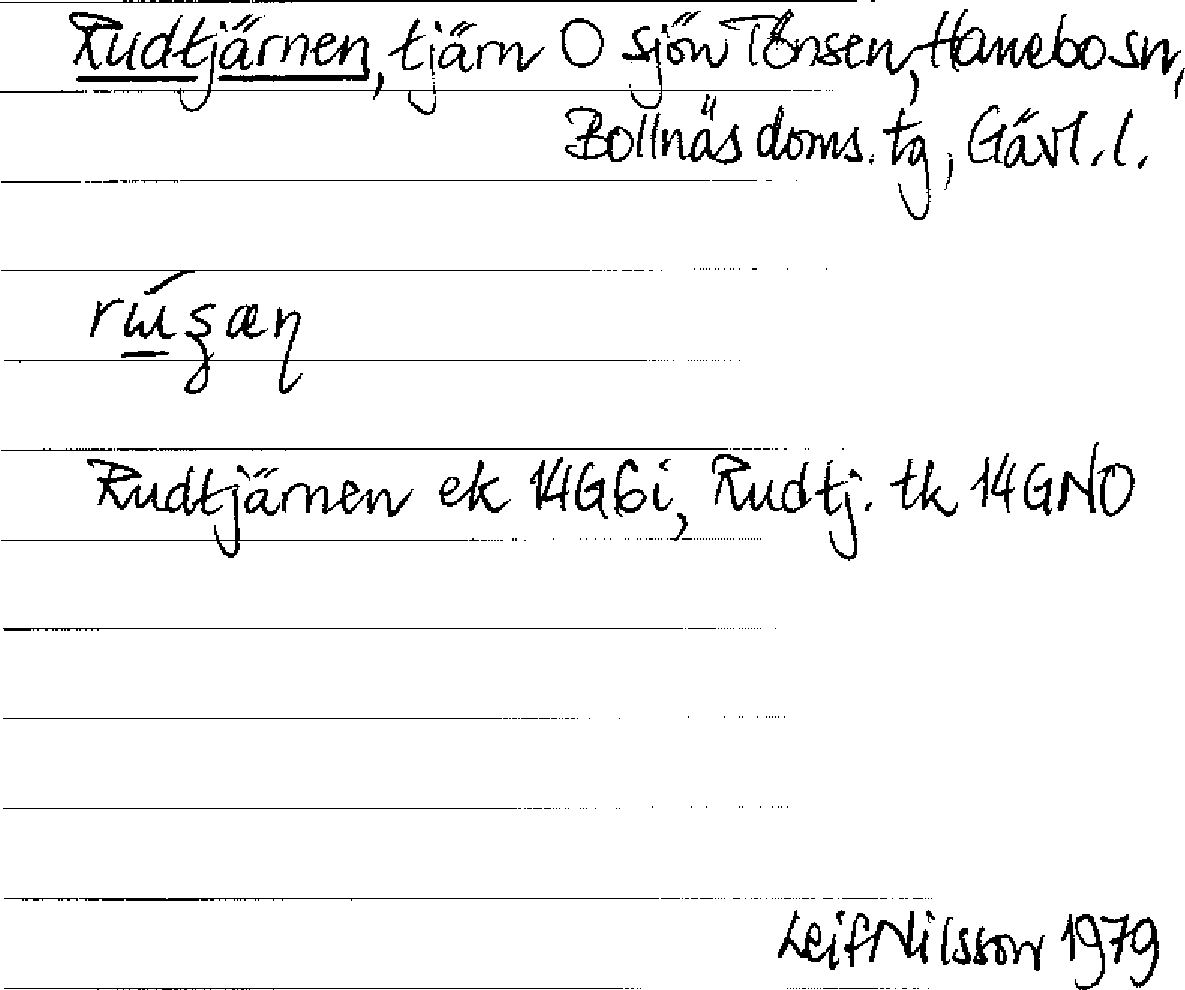 Rudtjärnen, tjärn O sjön Tönsen, Hanebo sn,
Bollnäs doms. tg, Gävl. l.
Rudtjärnen ek 14G6i, Rudtj. tk 14GNO
Leif Nilsson 1979